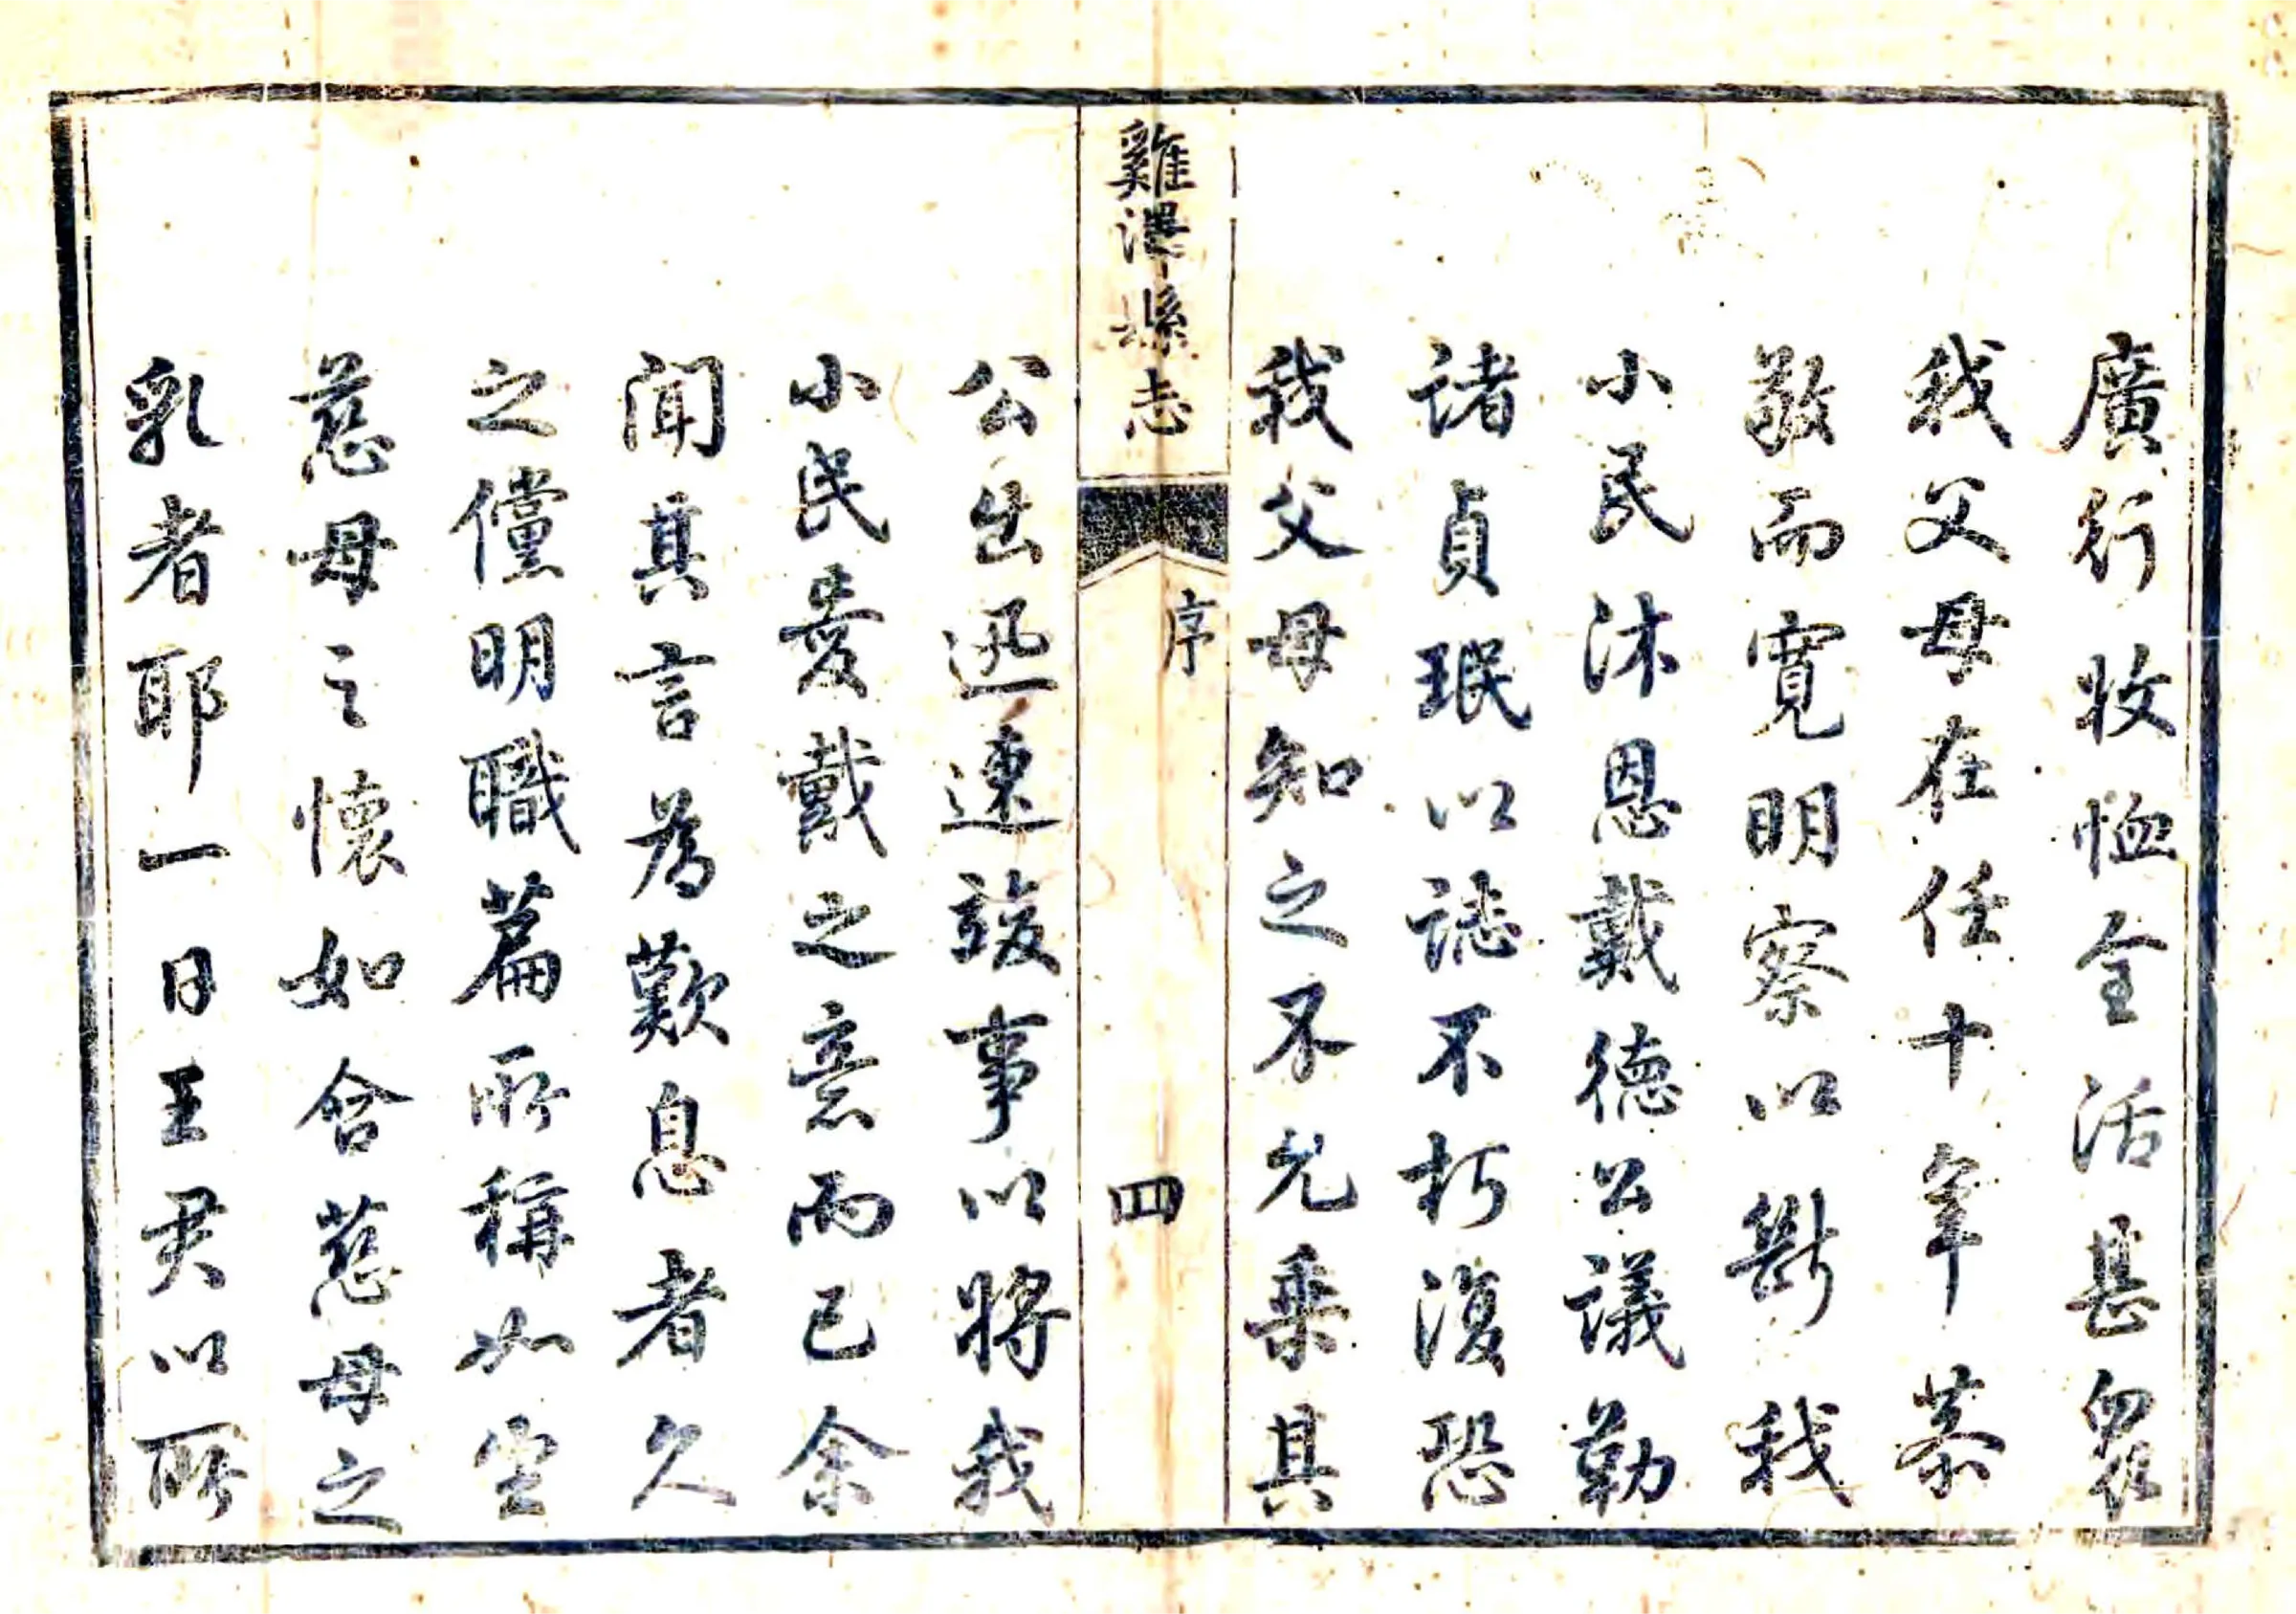 廣行收恤全活甚眾
我父母在任十年恭
敬而寬明察以斷我
小民沐恩戴德公議勒
諸貞珉以誌不朽復恐
我父母知之不允乘其
雞澤縣志
序
四
公出迅速竣事以將我
小民愛戴之意而已余
聞其言為歎息者久
之儻明職篇所稱如坐
慈母之懷如含慈母之
乳者耶一日王君以所